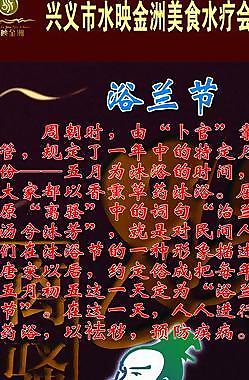 映金洲
兴义市水映金洲美食水疗会
浴兰节
周朝时，由“卜官”掌
管，规定了一年中的特定月
份——五月为沐浴的时间，
大家都以香熏草药沐浴。屈
原“离骚”中的词句“浴兰
汤今沐芳”，就是对民间人
们在沐浴节的一种形象描述
唐家以后，约定俗成把每年
五月初五这一天定为“浴兰
节”。在这一天，人人进行
药浴，以祛秽，预防疾病。